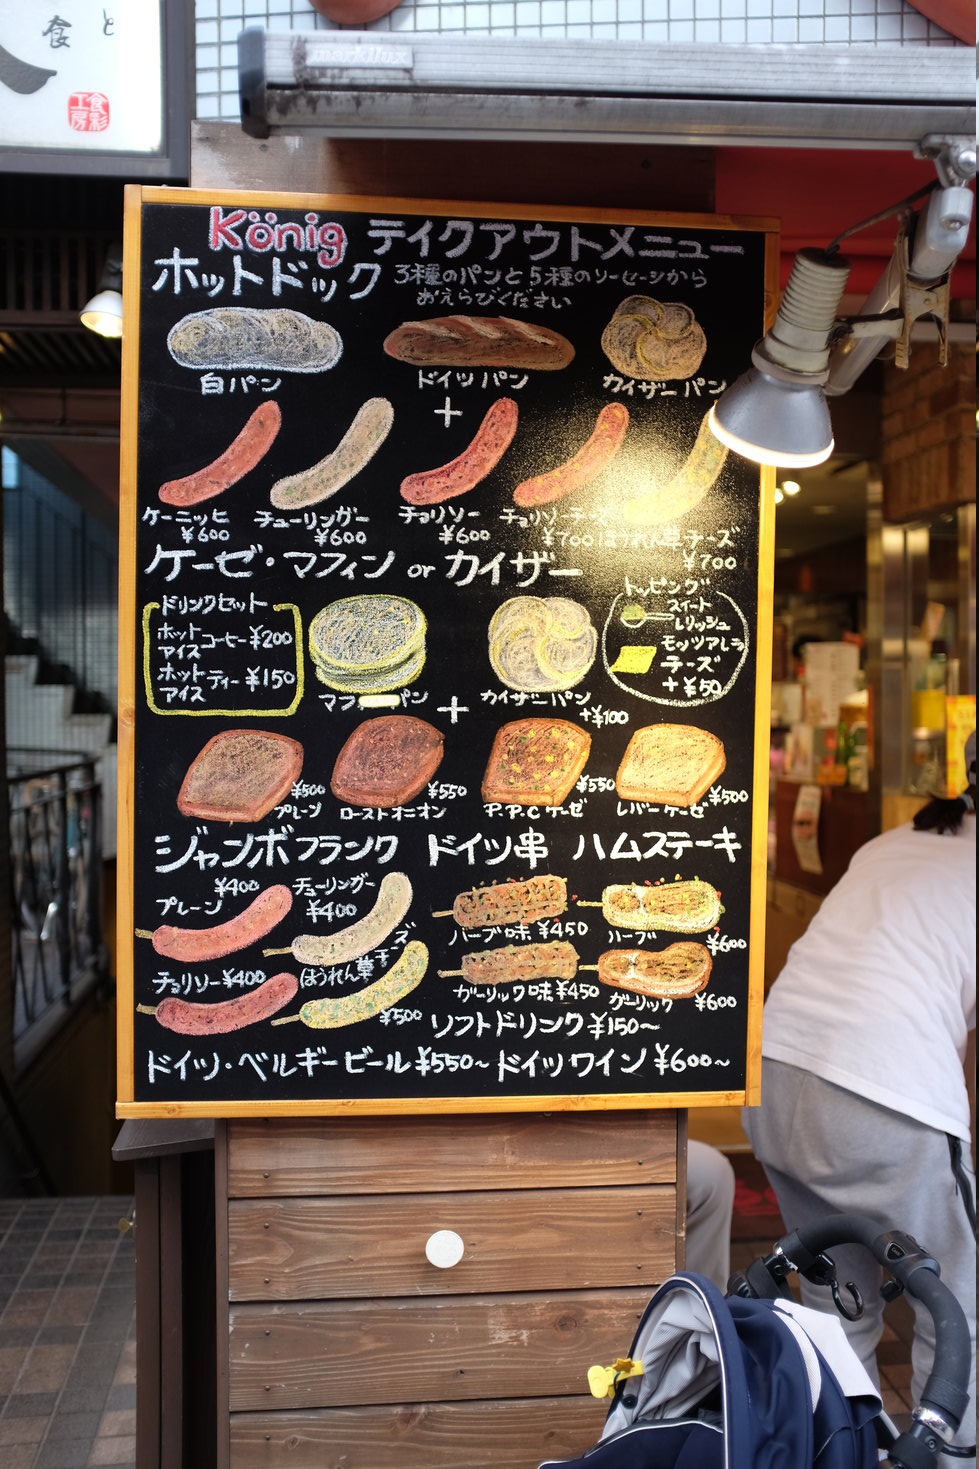 食 と
食彩
工房
markilux
König テイクアウトメニュー
ホットドック 3種のパンと5種のソーセージから
おえらびください
白パン ドイツパン カイザーパン
+
ケーニッヒ ¥600
チューリンガー ¥600
チョリソー ¥600
チョリソーチーズ ¥700
ほうれん草チーズ ¥700
ケーゼ・マフィン or カイザー
ドリンクセット
ホット アイス コーヒー ¥200
ホット アイス ティー ¥150
トッピング
スイート
レリッシュ
モッツアレラ
チーズ
+¥50
パン カイザーパン +¥100
+
¥500 プレーン
¥550 ローストオニオン
¥550 P.P.Cケーゼ
¥500 レバーケーゼ
ジャンボフランク ドイツ串 ハムステーキ
プレーン ¥400
チューリンガー ¥400
チョリソー ¥400
ほうれん草チーズ ¥500
ハーブ味 ¥450
ガーリック味 ¥450
ハーブ ¥600
ガーリック ¥600
ソフトドリンク ¥150〜
ドイツ・ベルギービール ¥550〜 ドイツワイン ¥600〜